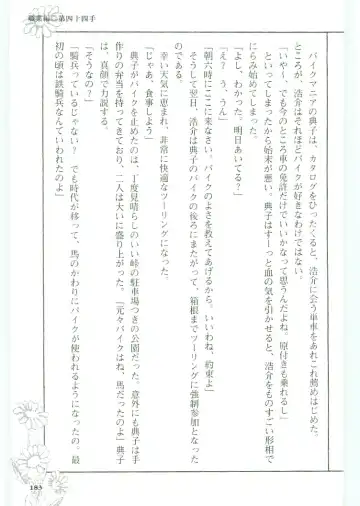 職業編□第四十四手
バイクマニアの典子は、カタログをひったくると、浩介に会う単車をあれこれ薦めはじめた。
ところが、浩介はそれほどバイクが好きなわけではない。
「いや〜、でも今のところ車の免許だけでいいかなって思うんだよね。原付きも乗れるし」
といってしまったから始末が悪い。典子はすーっと血の気を引かせると、浩介をものすごい形相で
にらみ始めてしまった。
「よし、わかった。明日あいてる?」
「え? う、うん」
「朝六時にここに来なさい。バイクのよさを教えてあげるから。いいわね、約束よ」
そうして翌日、浩介は典子のバイクの後ろにまたがって、箱根までツーリングに強制参加と
なったのである。
幸い天気に恵まれ、非常に快適なツーリングになった。
「じゃあ、食事しよう」
典子がバイクを止めたのは、丁度見晴らしのいい峠の駐車場つきの公園だった。意外にも典子は手
作りの弁当を持ってきており、二人は大いに盛り上がった。「元々バイクはね、馬だったのよ」典子
は、真顔で力説する。
「そうなの?」
「騎兵っているじゃない? でも時代が移って、馬のかわりにバイクが使われるようになったの。最
初の頃は鉄騎兵なんていわれたのよ」
183